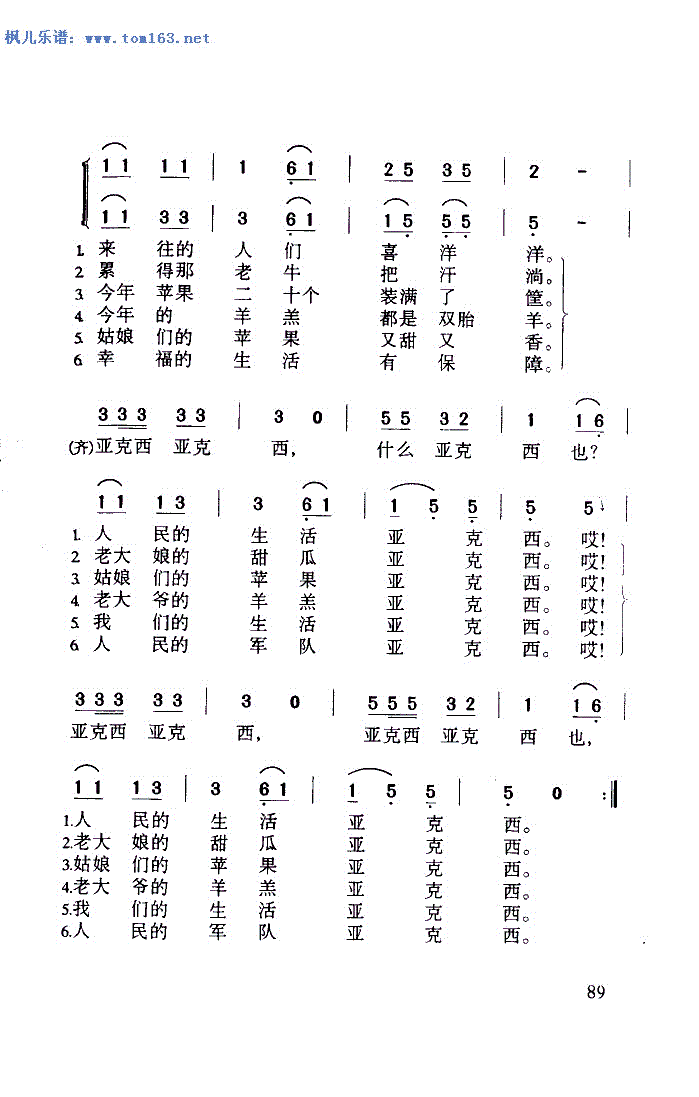 枫儿乐谱：www.tom163.net
1 1 1 1 | 1 6 1 | 2 5 3 5 | 2 - |
1 1 3 3 | 3 6 1 | 1 5 5 5 | 5 - |
1. 来 往的 人 们 喜 洋 洋。
2. 累 得那 老 牛 把 汗 淌。
3. 今年 苹果 二 十个 装满 了 筐。
4. 今年 的 羊 羔 都是 双胎 羊。
5. 姑娘 们的 苹 果 又甜 又 香。
6. 幸 福的 生 活 有 保 障。
3 3 3 3 3 | 3 0 | 5 5 3 2 | 1 1 6 |
(齐)亚克西 亚克 西， 什么 亚克 西 也？
1 1 1 3 | 3 6 1 | 1 5 5 | 5 5 |
1. 人 民的 生 活 亚 克 西。哎！
2. 老大 娘的 甜 瓜 亚 克 西。哎！
3. 姑娘 们的 苹 果 亚 克 西。哎！
4. 老大 爷的 羊 羔 亚 克 西。哎！
5. 我 们的 生 活 亚 克 西。哎！
6. 人 民的 军 队 亚 克 西。哎！
3 3 3 3 3 | 3 0 | 5 5 5 3 2 | 1 1 6 |
亚克西 亚克 西， 亚克西 亚克 西 也，
1 1 1 3 | 3 6 1 | 1 5 5 | 5 0 :‖
1.人 民的 生 活 亚 克 西。
2.老大 娘的 甜 瓜 亚 克 西。
3.姑娘 们的 苹 果 亚 克 西。
4.老大 爷的 羊 羔 亚 克 西。
5.我 们的 生 活 亚 克 西。
6.人 民的 军 队 亚 克 西。
89